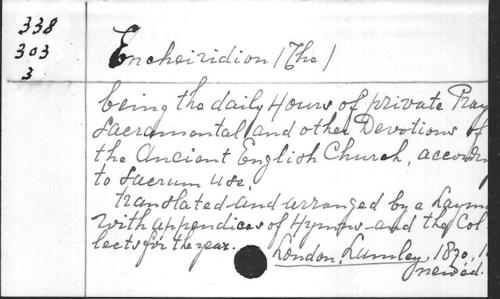 338
303
3
Encheiridion (The)
being the daily Hours of private Pray
Sacramental and other Devotions of
the Ancient English Church, accordin
to Sacrum Use.
translated and arranged by a Laym
with appendices of Hymns and the Col
lects for the year.
London, Lumley, 1870, 1
new ed.